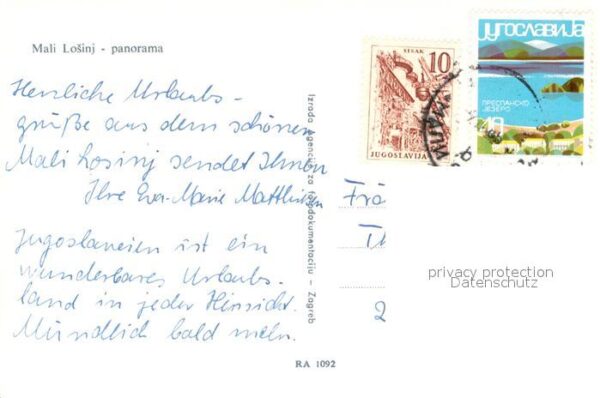 Mali Lošinj - panorama
Herzliche Urlaubs-
grüße aus dem schönen
Mali Losinj sendet Ihnen
Ihre Eva-Marie Matthiesen
Jugoslaneien ist ein
wunderbares Urlaubs-
land in jeder Hinsicht.
Mündlich bald mehr.
Izrada Agencija za fotodokumentaciju - Zagreb
RA 1092
SISAK
10
JUGOSLAVIJA
Југославија
ПРЕСПАНСКО
ЈЕЗЕРО
10
Frä
Th
2
privacy protection
Datenschutz